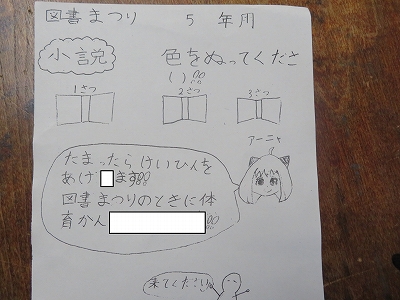 図書まつり 5年用
小説 色をぬってくださ
い!!
1さつ 2さつ 3さつ
アーニャ
たまったらけいひんを
あげ ます!!
図書まつりのときに体
育かん !!
来てください